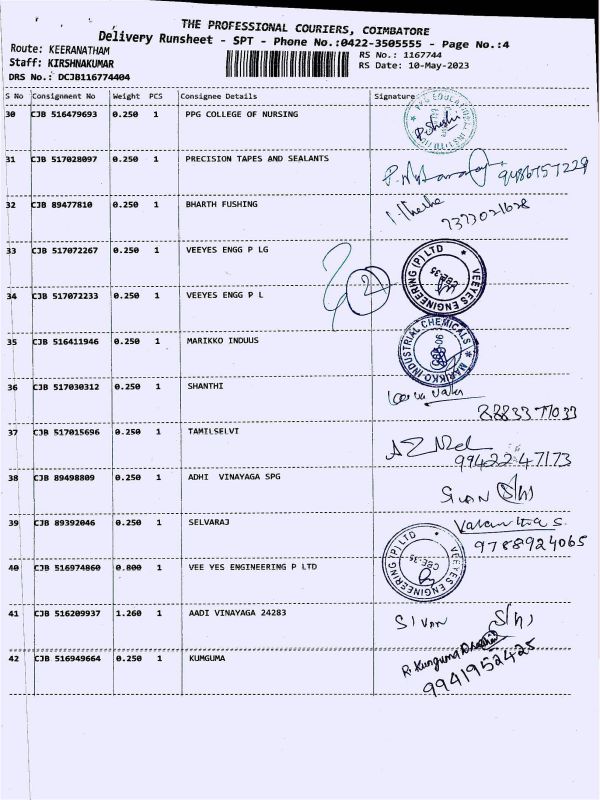 THE PROFESSIONAL COURIERS, COIMBATORE
Delivery Runsheet - SPT - Phone No.:0422-3505555 - Page No.:4
Route: KEERANATHAM
RS No.: 1167744
Staff: KIRSHNAKUMAR
RS Date: 10-May-2023
DRS No.: DCJB116774404
S No Consignment No Weight PCS Consignee Details Signature
30 CJB 516479693 0.250 1 PPG COLLEGE OF NURSING
31 CJB 517028097 0.250 1 PRECISION TAPES AND SEALANTS 9486757229
32 CJB 89477810 0.250 1 BHARTH FUSHING
7373021628
33 CJB 517072267 0.250 1 VEEYES ENGG P LG VEEYES ENGINEERING (P) LTD CBE-35
34 CJB 517072233 0.250 1 VEEYES ENGG P L 2
35 CJB 516411946 0.250 1 MARIKKO INDUUS MARIKKO-INDUSTRIAL CHEMICALS
36 CJB 517030312 0.250 1 SHANTHI
8883377033
37 CJB 517015696 0.250 1 TAMILSELVI
9942247173
38 CJB 89498809 0.250 1 ADHI VINAYAGA SPG
SIVAN
39 CJB 89392046 0.250 1 SELVARAJ
9788924065
40 CJB 516974860 0.800 1 VEE YES ENGINEERING P LTD VEEYES ENGINEERING (P) LTD CBE-35
41 CJB 516209937 1.260 1 AADI VINAYAGA 24283 SIVAN
42 CJB 516949664 0.250 1 KUMGUMA R. Kunguma
9941952425